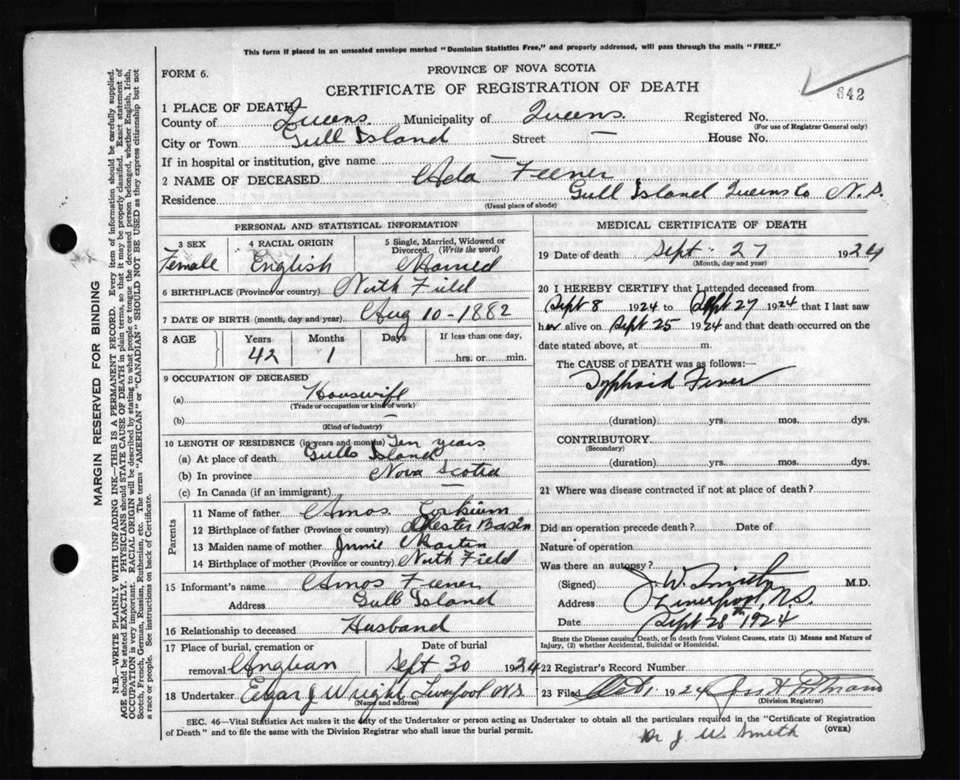 This form if placed in an unsealed envelope marked "Dominion Statistics Free," and properly addressed, will pass through the mails "FREE."
FORM 6.
PROVINCE OF NOVA SCOTIA
CERTIFICATE OF REGISTRATION OF DEATH
642
1 PLACE OF DEATH
County of Queens Municipality of Queens. Registered No.
(For use of Registrar General only)
City or Town Gull Island Street — House No.
If in hospital or institution, give name —
2 NAME OF DECEASED Ada Feener
Residence Gull Island Queens Co N.S.
(Usual place of abode)
PERSONAL AND STATISTICAL INFORMATION
3 SEX Female
4 RACIAL ORIGIN English
5 Single, Married, Widowed or Divorced. (Write the word) Married
6 BIRTHPLACE (Province or country) North Field
7 DATE OF BIRTH (month, day and year) Aug 10-1882
8 AGE Years 42 Months 1 Days If less than one day, hrs. or min.
9 OCCUPATION OF DECEASED
(a) Housewife
(Trade or occupation or kind of work)
(b) —
(Kind of industry)
10 LENGTH OF RESIDENCE (in years and months) Ten years
(a) At place of death Gulls Island
(b) In province Nova Scotia
(c) In Canada (if an immigrant) —
Parents
11 Name of father Amos
12 Birthplace of father (Province or country) Chester Basin
13 Maiden name of mother Martin
14 Birthplace of mother (Province or country) North Field
15 Informant's name Amos Feener
Address Gull Island
16 Relationship to deceased Husband
17 Place of burial, cremation or removal Date of burial Sept 30 1924
18 Undertaker Edgar J Wright Liverpool N.S.
(Name and address)
MEDICAL CERTIFICATE OF DEATH
19 Date of death Sept. 27 1924
(Month, day and year)
20 I HEREBY CERTIFY that I attended deceased from
Sept 8 1924 to Sept 27 1924 that I last saw
her alive on Sept 25 1924 and that death occurred on the
date stated above, at m.
The CAUSE OF DEATH was as follows:
Typhoid Fever
(duration) yrs. mos. dys.
CONTRIBUTORY
(Secondary)
(duration) yrs. mos. dys.
21 Where was disease contracted if not at place of death?
Did an operation precede death? Date of
Nature of operation
Was there an autopsy?
(Signed) J. W. Smith M.D.
Address Liverpool, N.S.
Date Sept 28th 1924
State the Disease causing Death, or in death from Violent Causes, state (1) Means and Nature of Injury, (2) whether Accidental, Suicidal or Homicidal.
22 Registrar's Record Number
23 Filed Oct. 1924
(Division Registrar)
SEC. 46—Vital Statistics Act makes it the duty of the Undertaker or person acting as Undertaker to obtain all the particulars required in the "Certificate of Registration
of Death" and to file the same with the Division Registrar who shall issue the burial permit.
(OVER)
Dr J. W. Smith
MARGIN RESERVED FOR BINDING
N.B.—WRITE PLAINLY WITH UNFADING INK—THIS IS A PERMANENT RECORD. Every item of information should be carefully supplied.
AGE should be stated EXACTLY. PHYSICIANS should STATE CAUSE OF DEATH in plain terms, so that it may be properly classified. Exact statement of
OCCUPATION is very important. RACIAL ORIGIN will be described by stating to what people or tongue the deceased person belonged, whether English, Irish,
Scotch, French, German, Russian, Ruthenian, etc. The terms "AMERICAN" or "CANADIAN" SHOULD NOT BE USED as they express citizenship but not
a race or people. See instructions on back of Certificate.